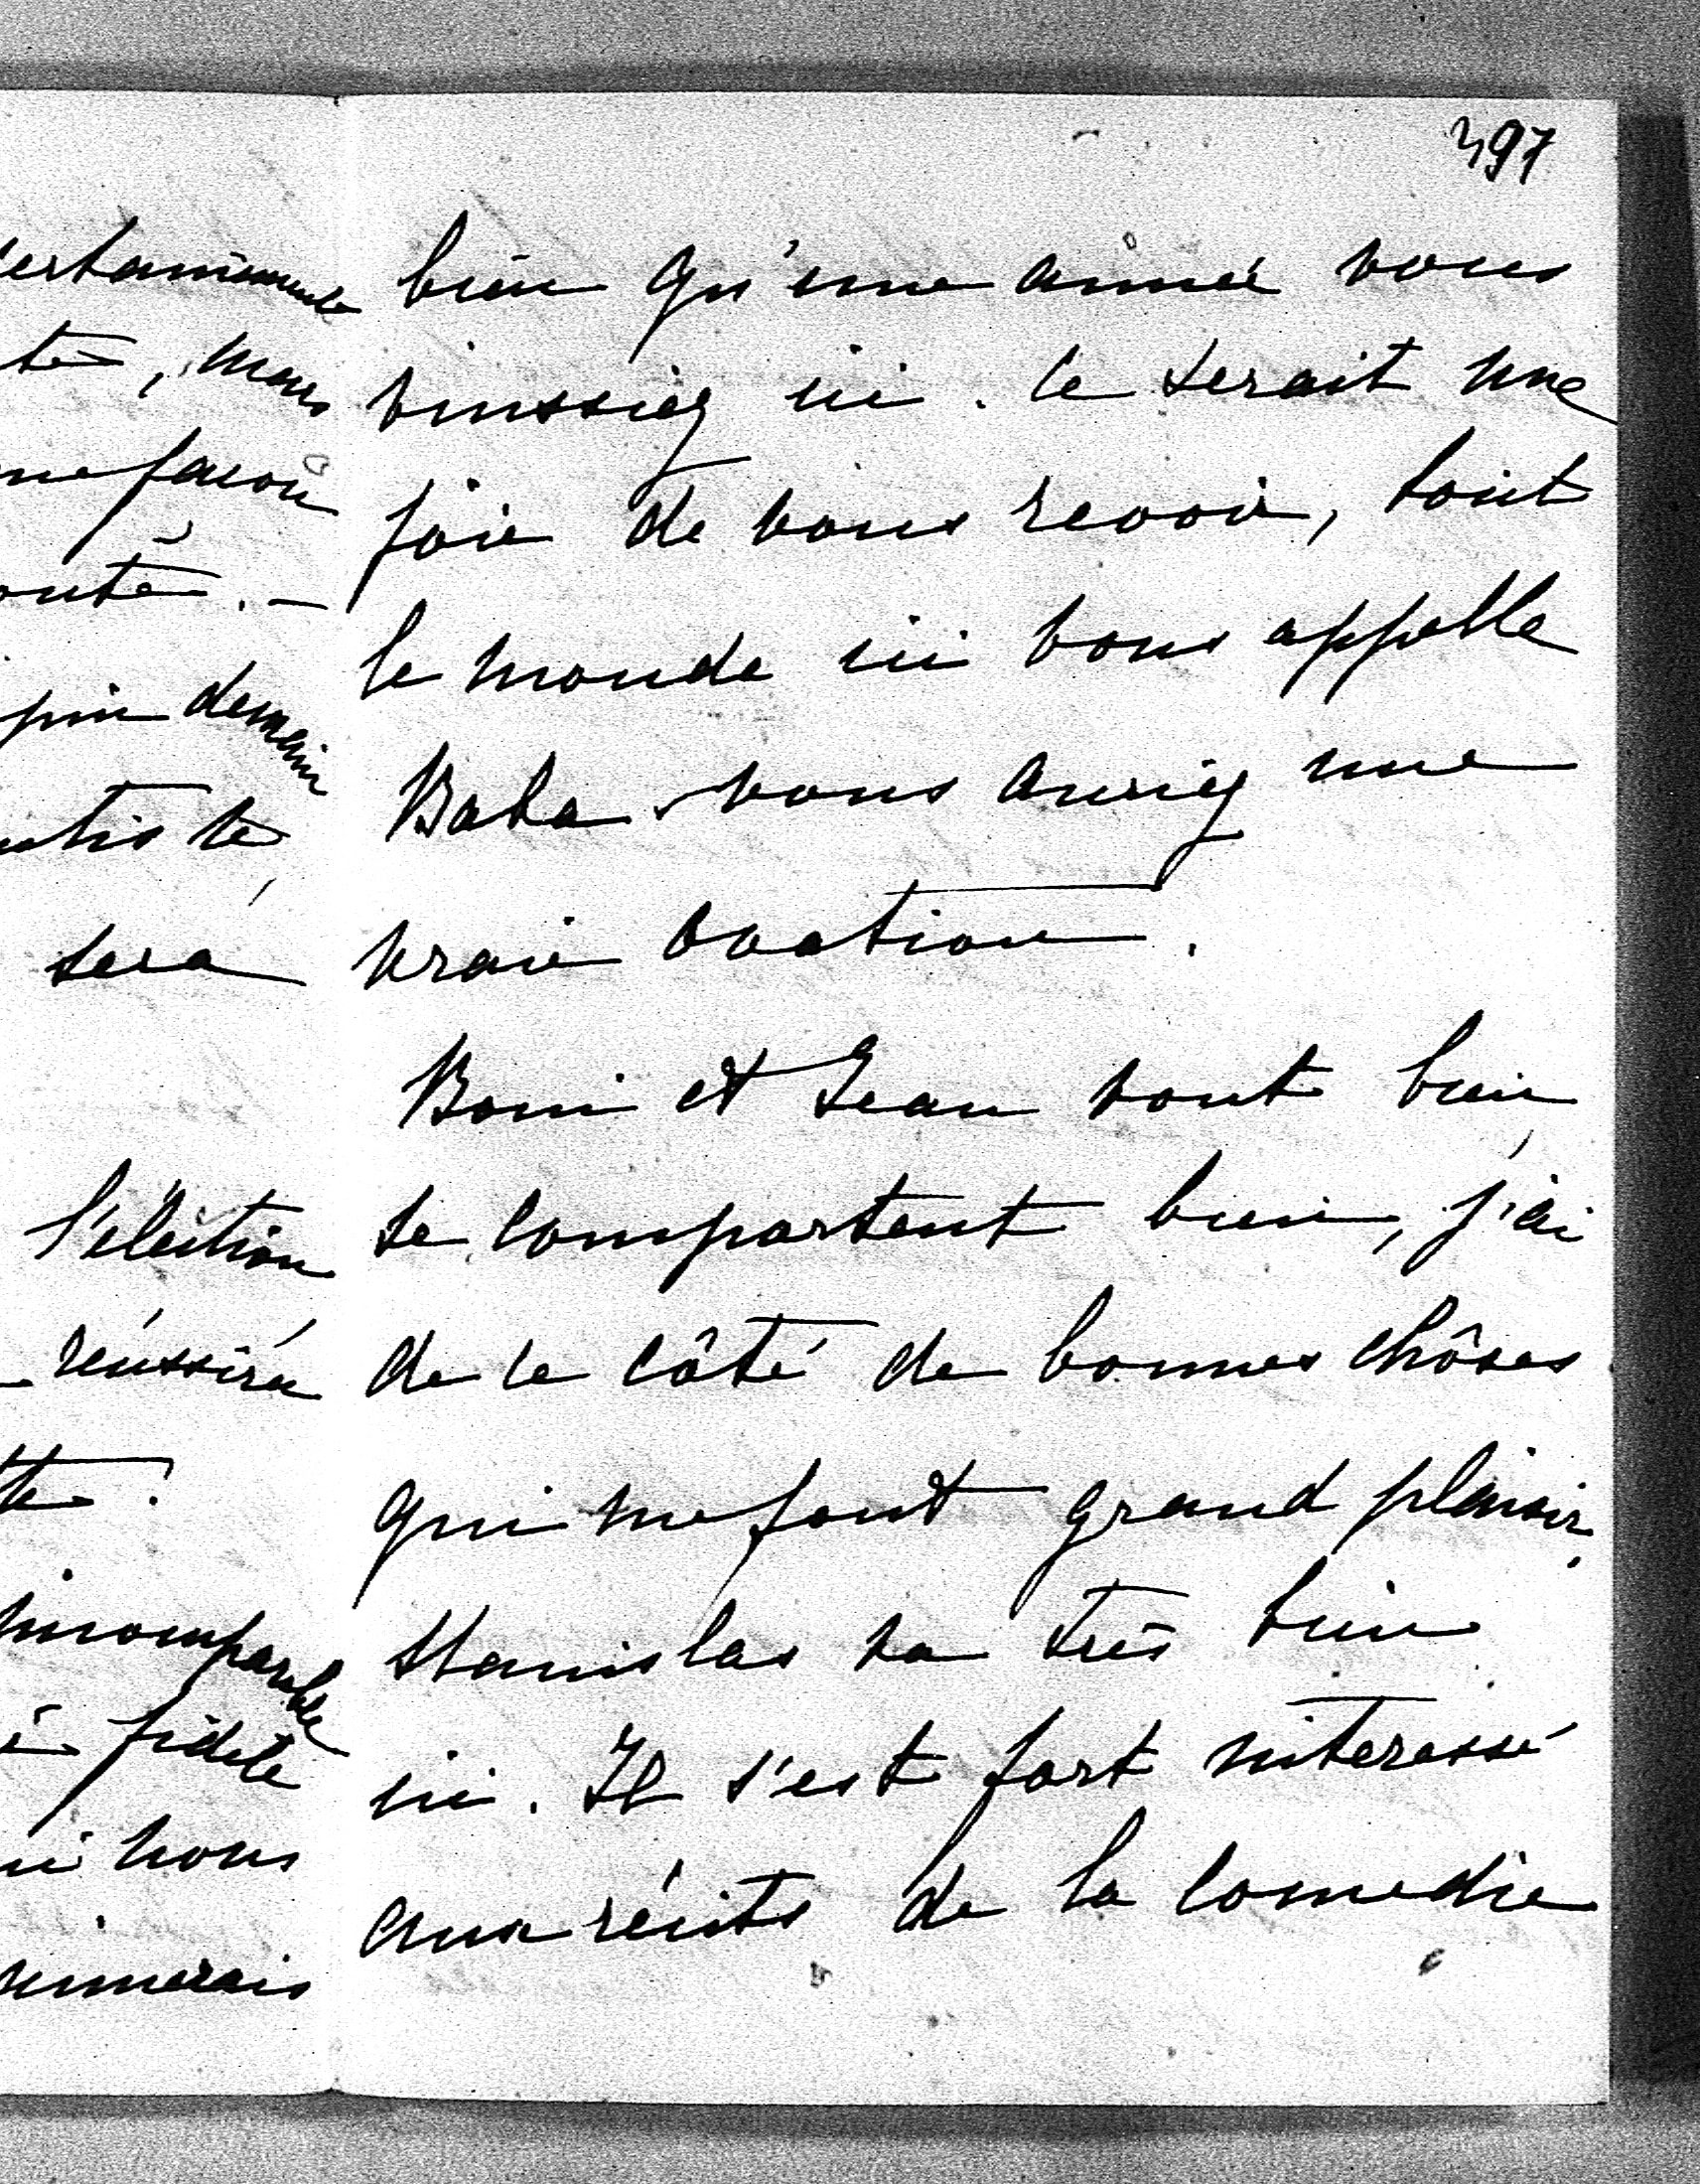 397
bien qu'une année vous
vinssiez ici. Ce serait une
joie de vous revoir, tout
le monde ici vous appelle
Baba vous auriez une
vraie ovation.
Boni et Jean vont bien
se comportent bien, j'ai
de ce côté de bonnes chôses
qui me font grand plaisir.
Stanislas va très bien
ici. Il s'est fort interessé
aux récits de la comedie
mais
façon
demain
sera
l'élection
réussira
incomparable
fidèle
nous